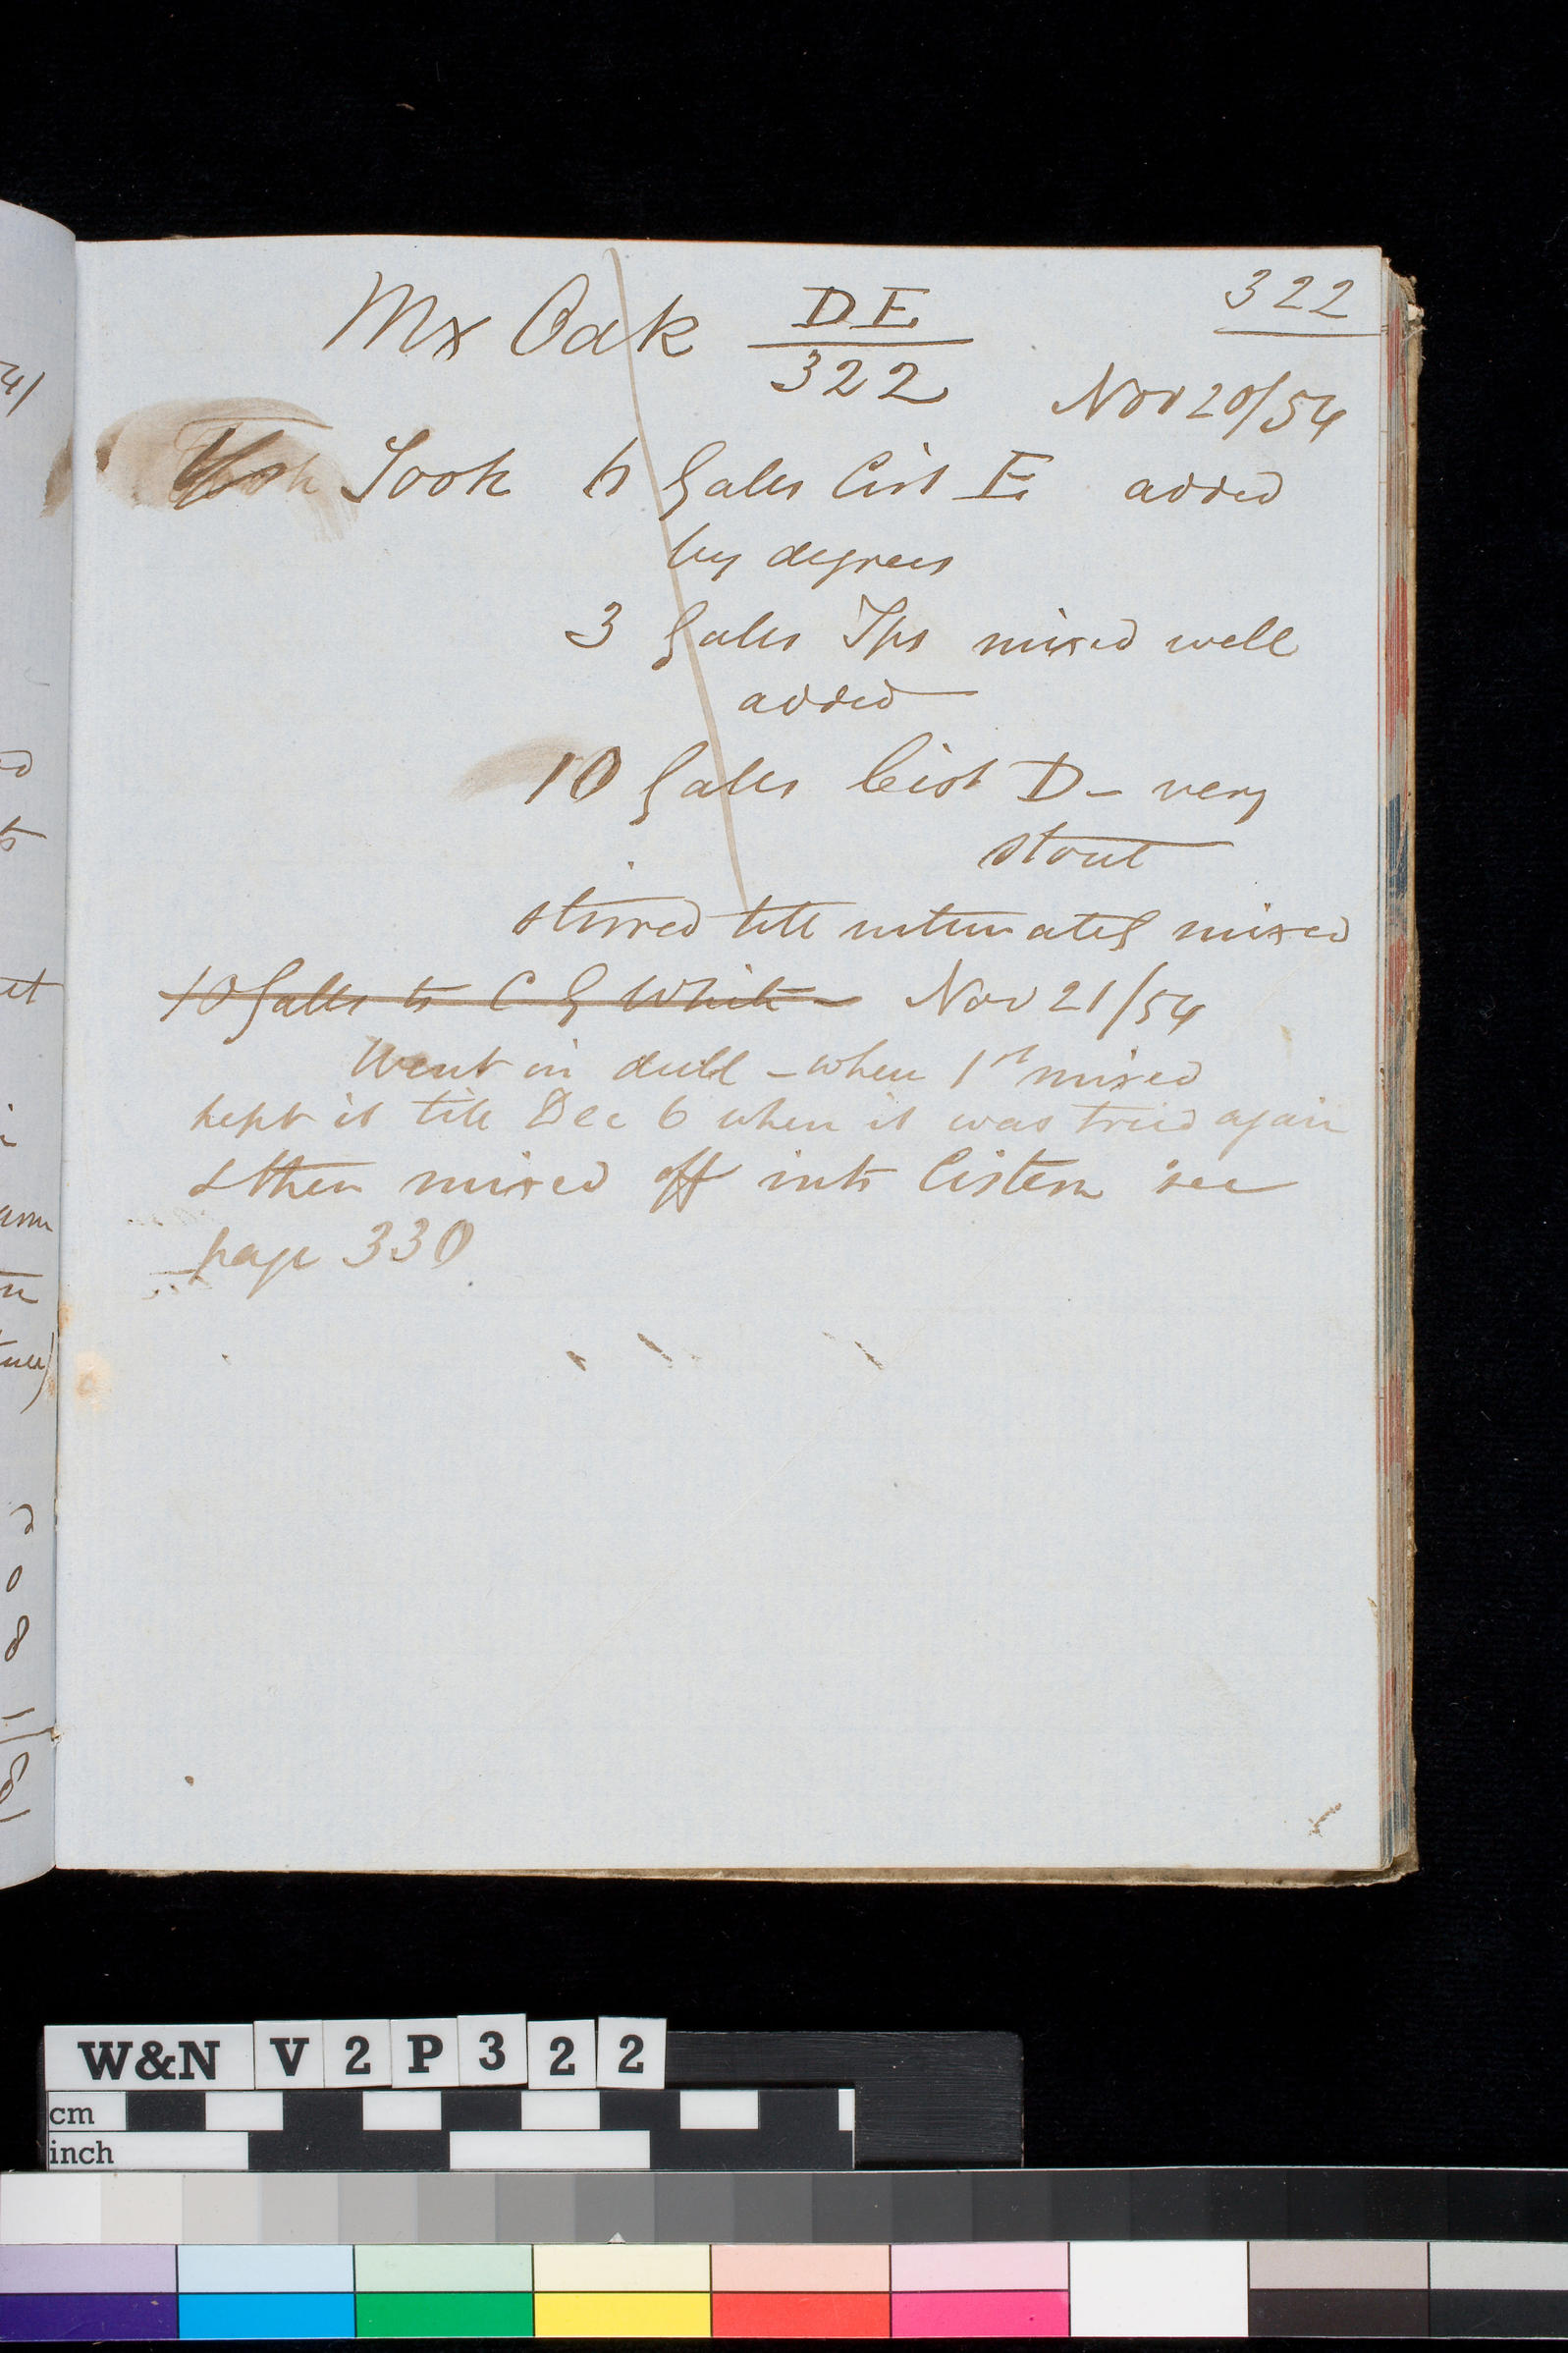 322
Mx Oak DE
322
Nov 20/54
Took 6 Galls Cist E added
by degrees
3 Galls Tps mixed well
added
10 Galls Cist D - very
stout
stirred till intimately mixed
10 Galls to C G White - Nov 21/54
Went in dull - when 1st mixed
kept it till Dec 6 when it was tried again
& then mixed off into Cistern see
page 330
W&N V2P322
cm
inch